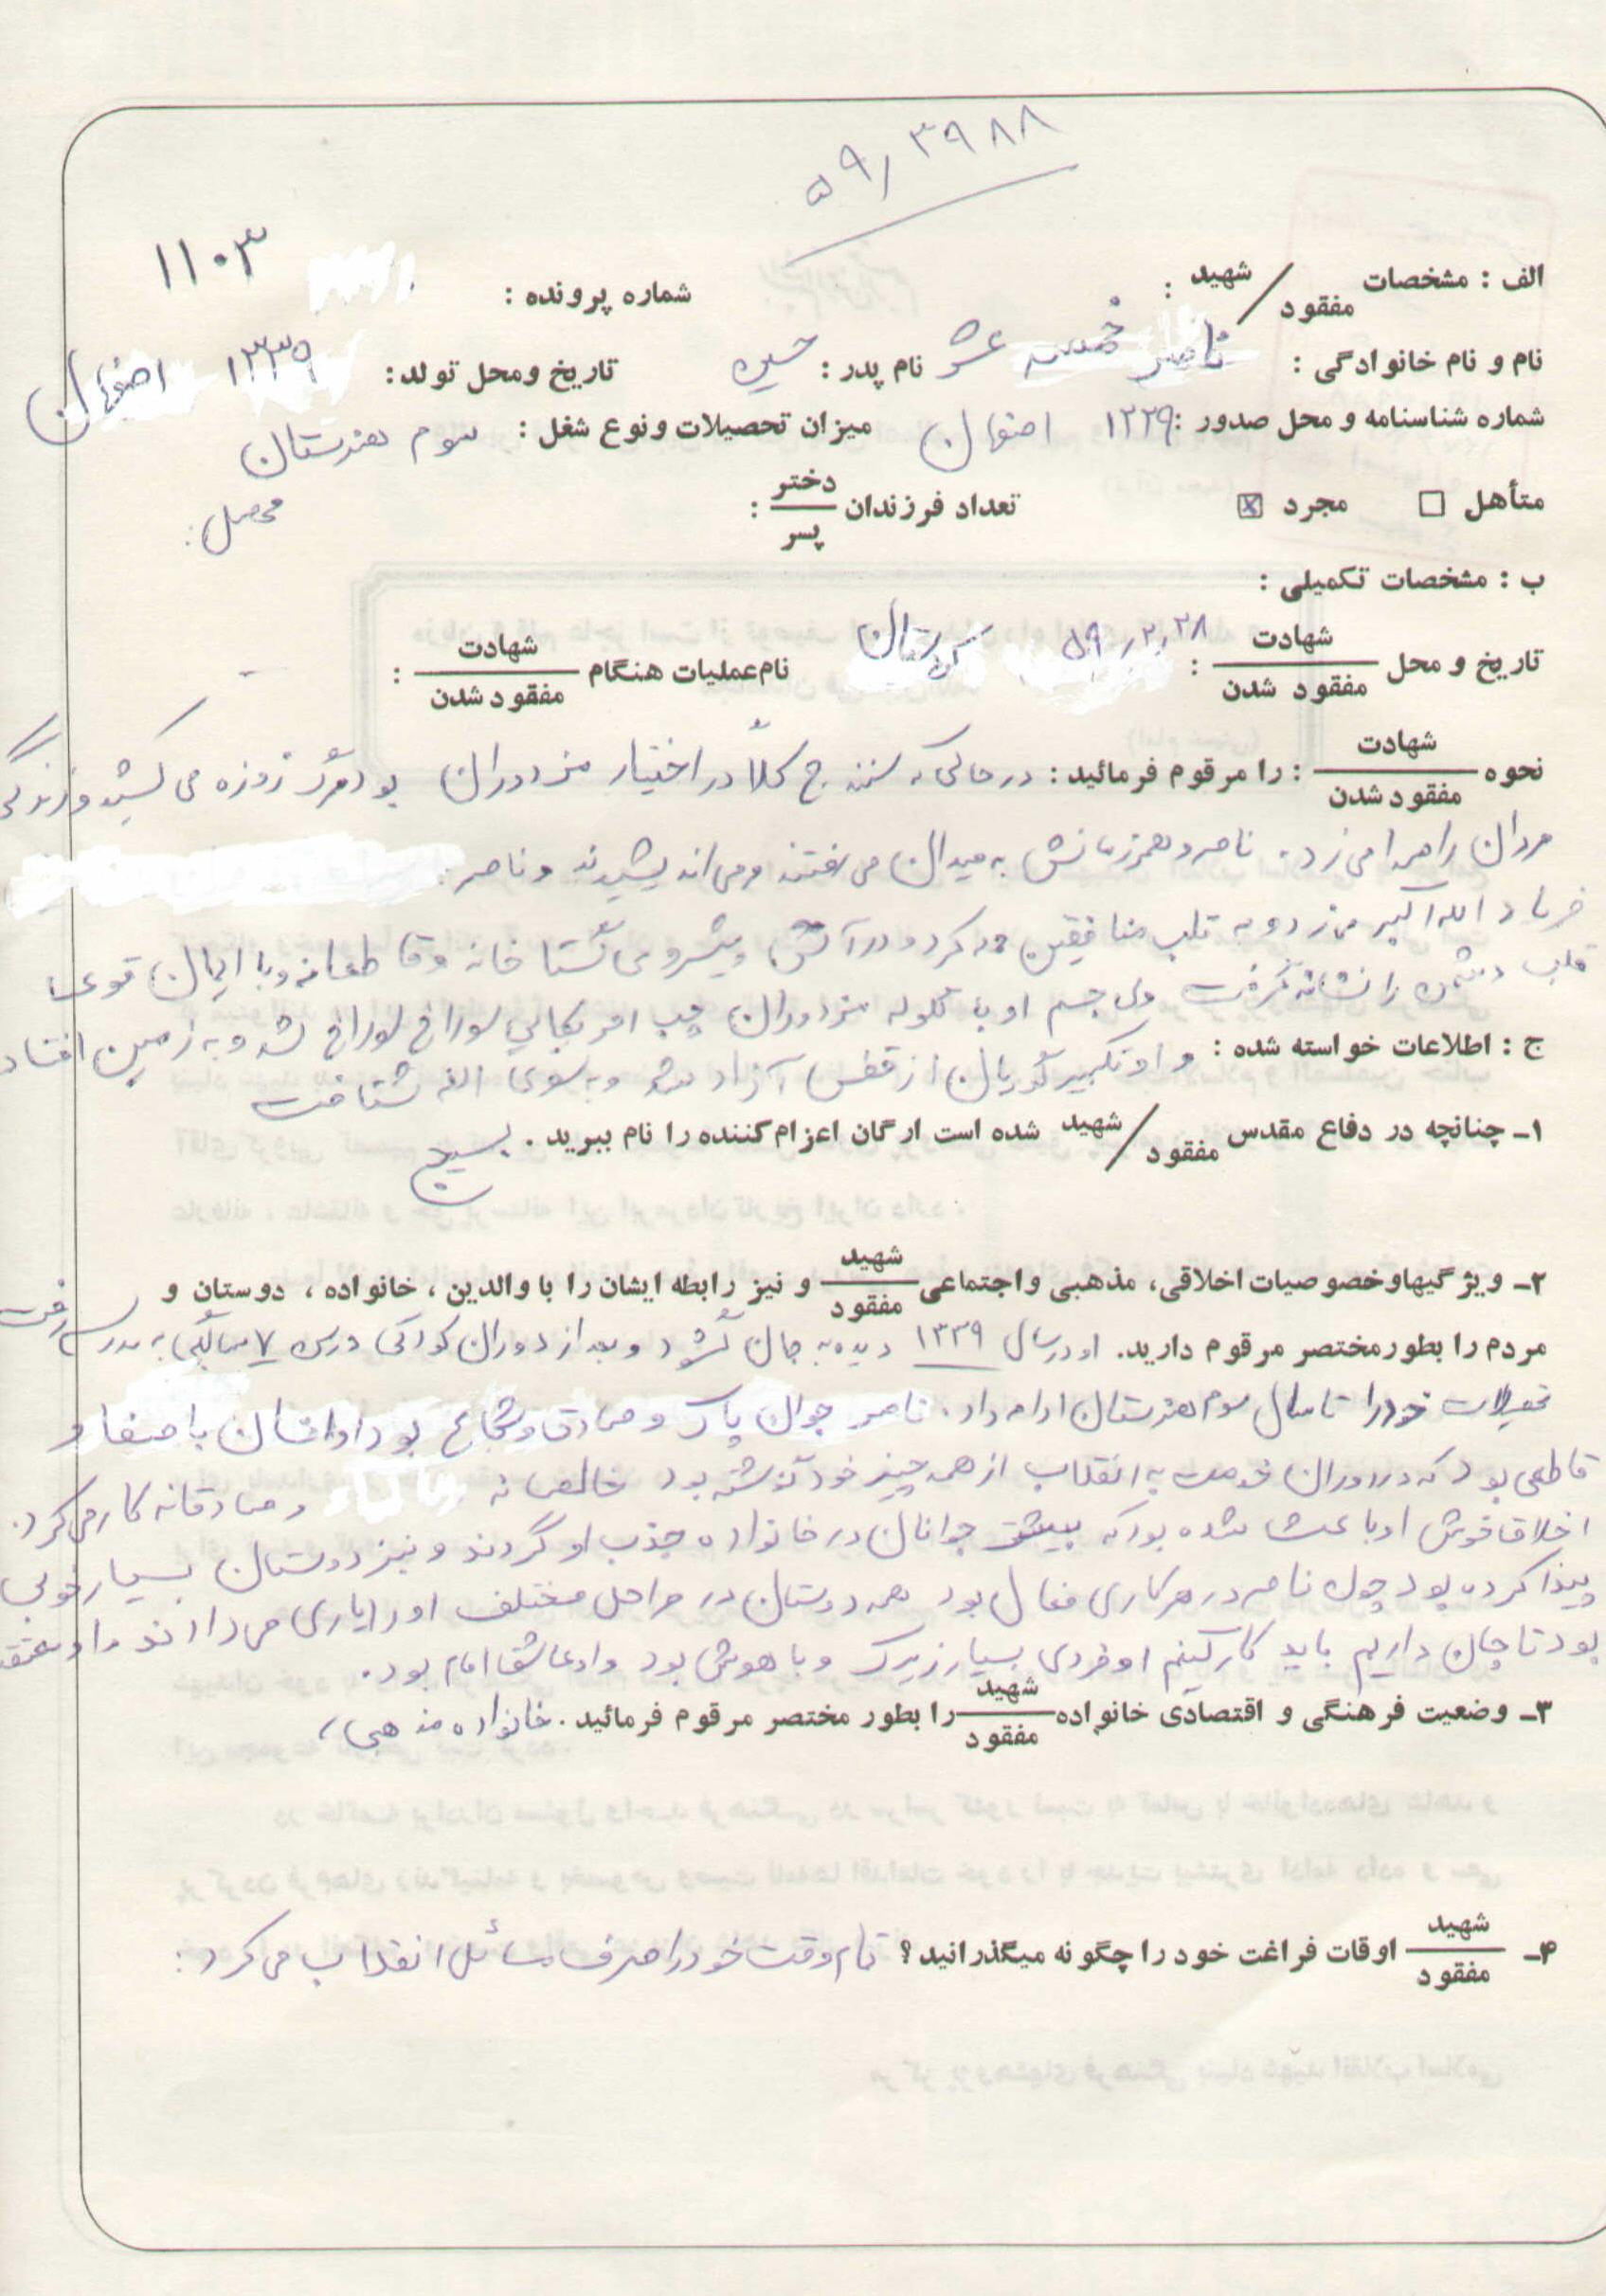 ۵۹/۳۹۸۸
۱۱۰۳
الف : مشخصات شهید / مفقود : شماره پرونده :
نام و نام خانوادگی : ناصر خمسه عشر نام پدر : حسین تاریخ ومحل تولد : ۱۳۳۹ اصفهان
شماره شناسنامه و محل صدور : ۱۲۲۹ اصفهان میزان تحصیلات ونوع شغل : سوم هنرستان
محصل :
متأهل □ مجرد ☒ تعداد فرزندان دختر / پسر :
ب : مشخصات تکمیلی :
تاریخ و محل شهادت / مفقود شدن : ۵۹/۲/۲۸ کردستان نام عملیات هنگام شهادت / مفقود شدن :
نحوه شهادت / مفقود شدن : را مرقوم فرمائید : در حالی که سنندج کلاً در اختیار مزدوران بود مرگ زوزه می کشید و زندگی
مردان را صدا می زد . ناصر و همرزمانش به میدان می رفتند و می اندیشیدند و ناصر
فریاد الله اکبر می زد و به قلب منافقین حمله کرد و در آتش پیشروی گستاخانه و قاطعانه و با ایمان قوی
قلب دشمن را نشانه گرفت ولی جسم او با گلوله مزدوران چپ امریکایی سوراخ سوراخ شد و به زمین افتاد
ج : اطلاعات خواسته شده : و او تکبیر گویان از قفس آزاد شد و به سوی الله شتافت
۱ـ چنانچه در دفاع مقدس شهید / مفقود شده است ارگان اعزام کننده را نام ببرید . بسیج
۲ـ ویژگیها وخصوصیات اخلاقی، مذهبی واجتماعی شهید / مفقود و نیز رابطه ایشان را با والدین ، خانواده ، دوستان و
مردم را بطور مختصر مرقوم دارید. او در سال ۱۳۳۹ دیده به جهان گشود و بعد از دوران کودکی در سن ۷ سالگی به مدرسه رفت
تحصیلات خود را تا سال سوم هنرستان ادامه داد . ناصر جوان پاک و صادق و شجاع بود او انسان با صفا و
قاطعی بود که در دوران خدمت به انقلاب از همه چیز خود گذشته بود خالصانه و صادقانه کار می کرد .
اخلاق خوش او باعث شده بود که بیشتر جوانان در خانواده جذب او گردند و نیز دوستان بسیار خوبی
پیدا کرده بود چون ناصر در هر کاری فعال بود همه دوستان در مراحل مختلف او را یاری می دادند و او معتقد
بود تا جان داریم باید کار کنیم او فردی بسیار زیرک و با هوش بود و او عاشق امام بود .
۳ـ وضعیت فرهنگی و اقتصادی خانواده شهید / مفقود را بطور مختصر مرقوم فرمائید . خانواده مذهبی
۴ـ شهید / مفقود اوقات فراغت خود را چگونه میگذرانید؟ تمام وقت خود را صرف مسائل انقلاب می کرد :